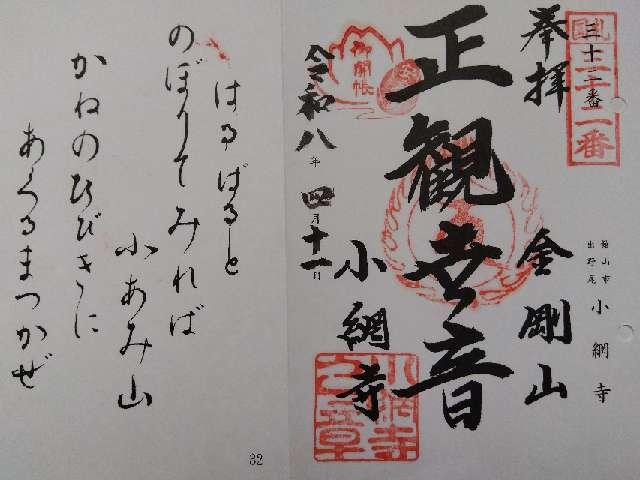 三十二番
三十二番
奉拝
金剛山
館山市
出野尾
小網寺
正観世音
小網寺
小網寺之章
御開帳
令和八年四月十一日
はるばると
のぼりてみれば
小あみ山
かねのひびきに
あくるまつかぜ
32